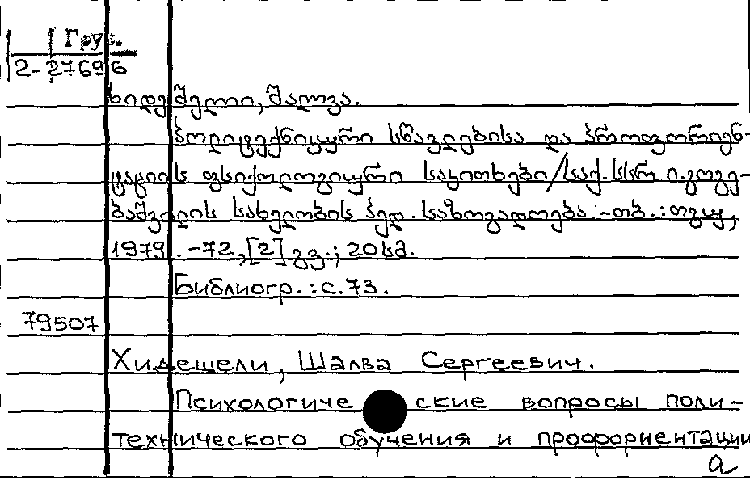 Груз.
2-27696
ხიდეშელი, შალვა.
პოლიტექნიკური სწავლებისა და პროფორიენ-
ტაციის ფსიქოლოგიური საკითხები/საქ. სსრ ი. გოგე-
ბაშვილის სახელობის პედ. საზოგადოება.-თბ.:
1979.-72,[2] გვ.; 20სმ.
Библиогр.: с.73.
79507
Хидешели, Шалва Сергеевич.
Психологические вопросы поли-
технического обучения и профориентации
а